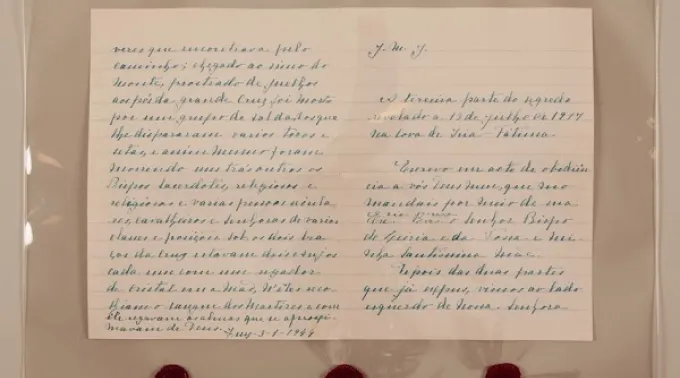 veres que encontrava pelo
caminho; chegado ao simo do
monte, prostrado de juelhos
aos pés da grande Cruz foi morto
por um grupo de soldados que
lhe dispararam varios tiros e
setas, e assim mesmo foram
morrendo uns trás outros os
Bispos Sacerdotes, religiosos e
religiosas e varias pessoas secula
res, cavalheiros e senhoras de varias
classes e posições. Sob os dois bra
ços da Cruz estavam dois Anjos
cada um com um regador
de cristal em a mão, n'êles reco
lhiam o sangue dos Martires e com
êle regavam as almas que se aproxi
mavam de Deus. Tuy-3-1-1944
J. M. J.
A terceira parte do segredo
revelado a 13 de julho de 1917
na Cova de Iria-Fátima.
Escrevo em acto de obediên
cia a vós Deus meu, que mo
mandais por meio de sua
Ex.cia Rev.ma o Senhor Bispo
de Leiria e da Vossa e mi
nha Santissima Mãe.
Depois das duas partes
que já expus, vimos ao lado
esquerdo de Nossa Senhora